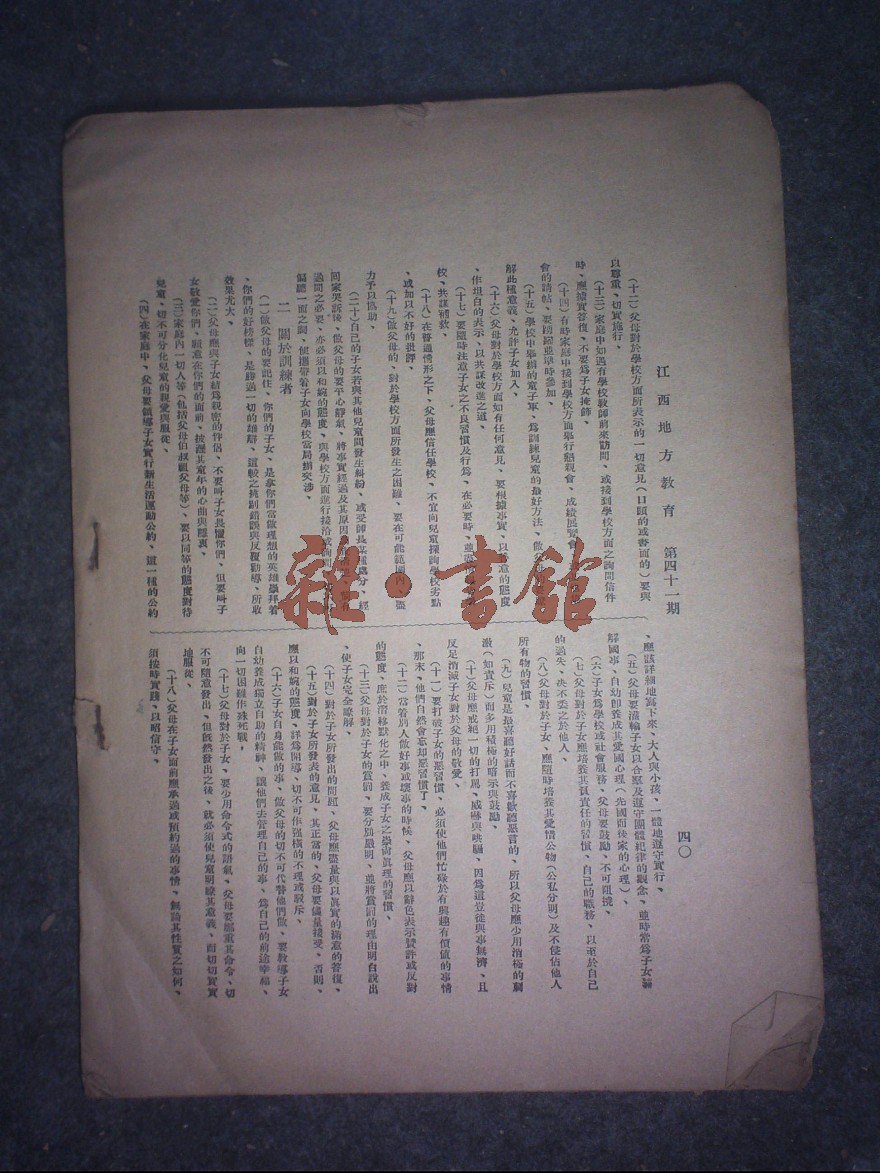 江西地方教育 第四十一期
四〇
(十二)父母對於學校方面所表示的一切意見(口頭的或書面的)要與
以尊重、切實施行、
(十三)家庭中如遇有學校教師前來訪問、或接到學校方面之詢問信件
時、應據實答復、不要爲子女掩飾、
(十四)有時家庭中接到學校方面舉行懇親會、成績展覽會
會的請帖、要踴躍並準時參加、
(十五)學校中舉辦的童子軍、爲訓練兒童的最好方法、做父
解此種意義、允許子女加入、
(十六)父母對於學校方面如有任何意見、要根據事實、以
、作坦白的表示、以共謀改進之道、
(十七)要隨時注意子女之不良習慣及行爲、在必要時、並
校、共謀補救、
(十八)在普通情形之下、父母應信任學校、不宜向兒童探詢學校劣點
、或加以不好的批評、
(十九)做父母的、對於學校方面所發生之困難、要在可能範圍內、盡
力予以協助、
(二十)自己的子女若與其他兒童間發生糾紛、或受師長某種處分、經
回家哭訴後、做父母的要平心靜氣、將事實經過及其原因
過問之必要、亦必須以和婉的態度、與學校方面進行接洽或詢問
偏聽一面之詞、便攜帶着子女向學校當局辦交涉、
二 關於訓練者
(一)做父母的要記住、你們的子女、是拿你們當做理想的英雄崇拜着
、你們的好榜樣、是勝過一切的雄辯、這較之挑剔錯誤與反覆勸導、所收
效果尤大、
(二)父母應與子女結爲親密的伴侶、不要叫子女畏懼你們、但要叫子
女敬愛你們、願意在你們的面前、披瀝其童年的心曲與隱衷、
(三)家庭內一切人等(包括父母伯叔祖父母等)、要以同等的態度對待
兒童、切不可分化兒童的親愛與服從、
(四)在家庭中、父母要領導子女實行新生活運動公約、這一種的公約
、應該詳細地寫下來、大人與小孩、一體地遵守實行、
(五)父母要灌輸子女以合羣及遵守團體紀律的觀念、並時常爲子女講
解國事、自幼卽養成其愛國心理(先國而後家的心理)、
(六)子女爲學校或社會服務、父母要鼓勵、不可阻撓、
(七)父母對於子女應培養其負責任的習慣、自己的職務、以至於自己
的過失、決不委之於他人、
(八)父母對於子女、應隨時培養其愛惜公物(公私分明)及不侵佔他人
所有物的習慣、
(九)兒童是最喜聽好話而不喜歡聽惡言的、所以父母應少用消極的刺
激(如責斥)而多用積極的暗示與鼓勵、
(十)父母應戒絕一切的打罵、威嚇與哄騙、因爲這豈徒與事無濟、且
反足消滅子女對於父母的敬愛、
(十一)要打破子女的惡習慣、必須使他們忙碌於有興趣有價值的事情
、那末、他們自然會忘却惡習慣了、
(十二)當着別人做好事或壞事的時候、父母應以辭色表示贊許或反對
的態度、庶於潛移默化之中、養成子女之崇尚眞理的習慣、
(十三)父母對於子女的賞罰、要分別嚴明、並將賞罰的理由明白說出
、使子女完全瞭解、
(十四)對於子女所發出的問題、父母應儘量與以眞實的滿意的答復、
(十五)對於子女所發表的意見、其正當的、父母要儘量接受、否則、
應以和婉的態度、詳爲開導、切不可作强橫的不理或駁斥、
(十六)子女自身能做的事、做父母的切不可代替他們做、要敎導子女
自幼養成獨立自助的精神、讓他們去管理自己的事、爲自己的前途幸福、
向一切困難作殊死戰、
(十七)父母對於子女、要少用命令式的語氣、父母要鄭重其命令、切
不可隨意發出、但旣然發出之後、就必須使兒童明瞭其意義、而切切實實
地服從、
(十八)父母在子女面前應承過或預約過的事情、無論其性質之如何、
須按時實踐、以昭信守、
雜·書館